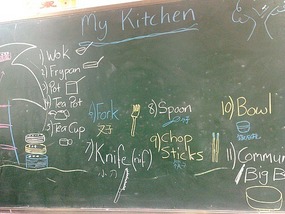 My Kitchen
1) Wok
2) Frypan
3) Pot
4) Tea Pot
5) Tea Cup
6) Fork
叉子
7) Knife (nif)
小刀
8) Spoon
9) Chop
Sticks
筷子
10) Bowl
11) Commun
Big B